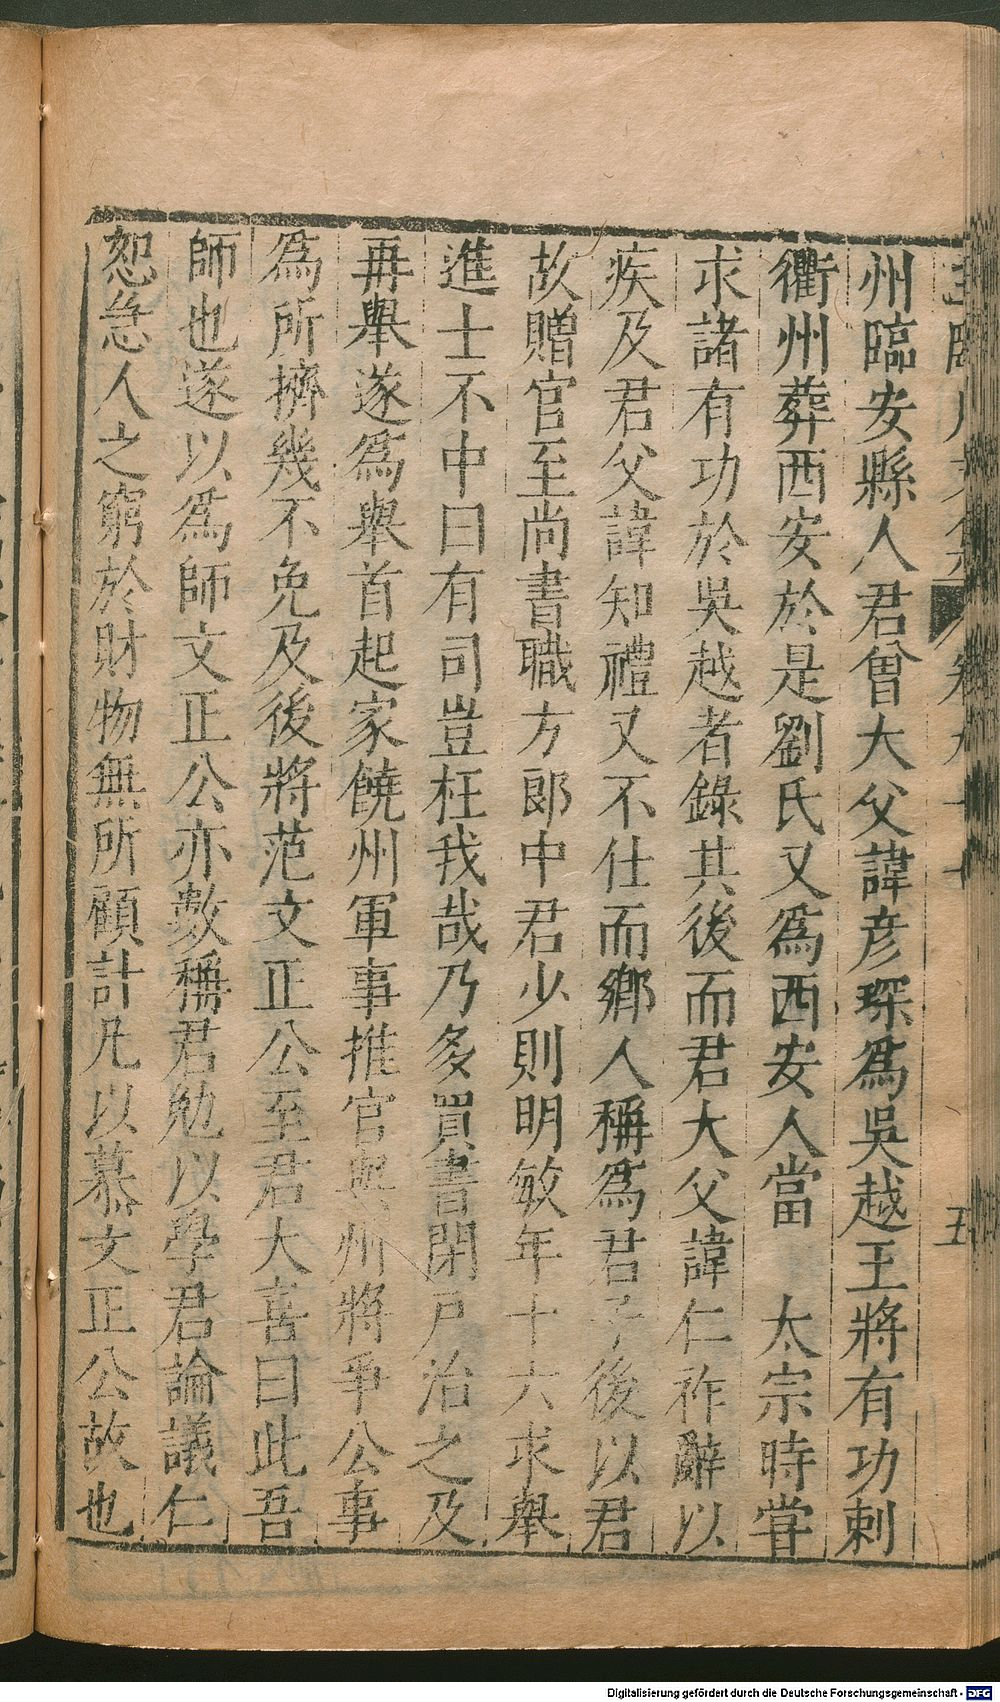 州臨安縣人君曾大父諱彦琛爲吳越王將有功刺
衢州葬西安於是劉氏又爲西安人當　太宗時甞
求諸有功於吳越者錄其後而君大父諱仁祚辭以
疾及君父諱知禮又不仕而鄉人稱爲君子後以君
故贈官至尚書職方郎中君少則明敏年十六求舉
進士不中曰有司豈枉我哉乃多買書閉戸治之及
再舉遂爲舉首起家饒州軍事推官與州將爭公事
爲所擠幾不免及後將范文正公至君大喜曰此吾
師也遂以爲師文正公亦數稱君勉以學君論議仁
恕急人之窮於財物無所顧計凡以慕文正公故也
五
Digitalisierung gefördert durch die Deutsche Forschungsgemeinschaft - DFG